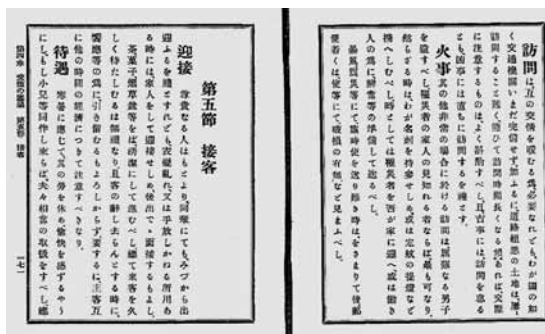 訪問は、互の交情を暖むる為、必要なれども、わが国の如
く交通機関いまだ完備せず、加ふるに、道路粗悪の土地は、屡
訪問すること難く、随ひて訪問時間長くなる傾あれば、交際
に注意するものは、よく斟酌すべし、且吉事には訪問を怠る
とも、凶事には直ちに訪問するを礼とす。
火事其の他非常の場合に於ける訪問は、屈強なる男子
を遣すべし、罹災者の家人の見知れる者ならば、最も可なり、
然らざる時は、わが名刺を持参せしめ、或は定紋の提燈など
携へしむべし、時としては罹災者を吾が家に迎へ、或は働き
人の為に、辨当等の準備して送るべし。
暴風震災等にて、臨時使を送り難き時は、をさまりて後、動
便若くは、使事にて、破損の有無など見まふべし。
第五節 接客
迎接 尊貴なる人はもとより、同輩にても、みづから出
迎ふるを礼とすれども、衣服乱れ、又は手放しかぬる所用あ
る時には、家人をして迎接せしめ、後出でゝ面接するもよし、
茶菓子煙草盆等をば、清潔にして進むべし、総て来客を久
しく待たしむるは、無礼なり、且客の辞し去らんとする時に、
饗応等の為に、引き留むるもよろしからず、要するに、主客互
に他の時間の経済につきて注意すべきなり。
待遇 寒暑に応じて、其の労を休め、愉快を感ずるやう
にし、もし小児等同伴し来らば、夫々相当の取扱をすべし、郷
第四章 交際の心得 第五節 接客
一七一